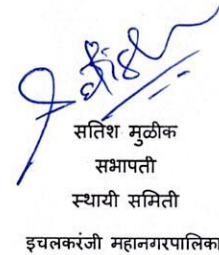 सतिश मुळीक
सभापती
स्थायी समिती
इचलकरंजी महानगरपालिका